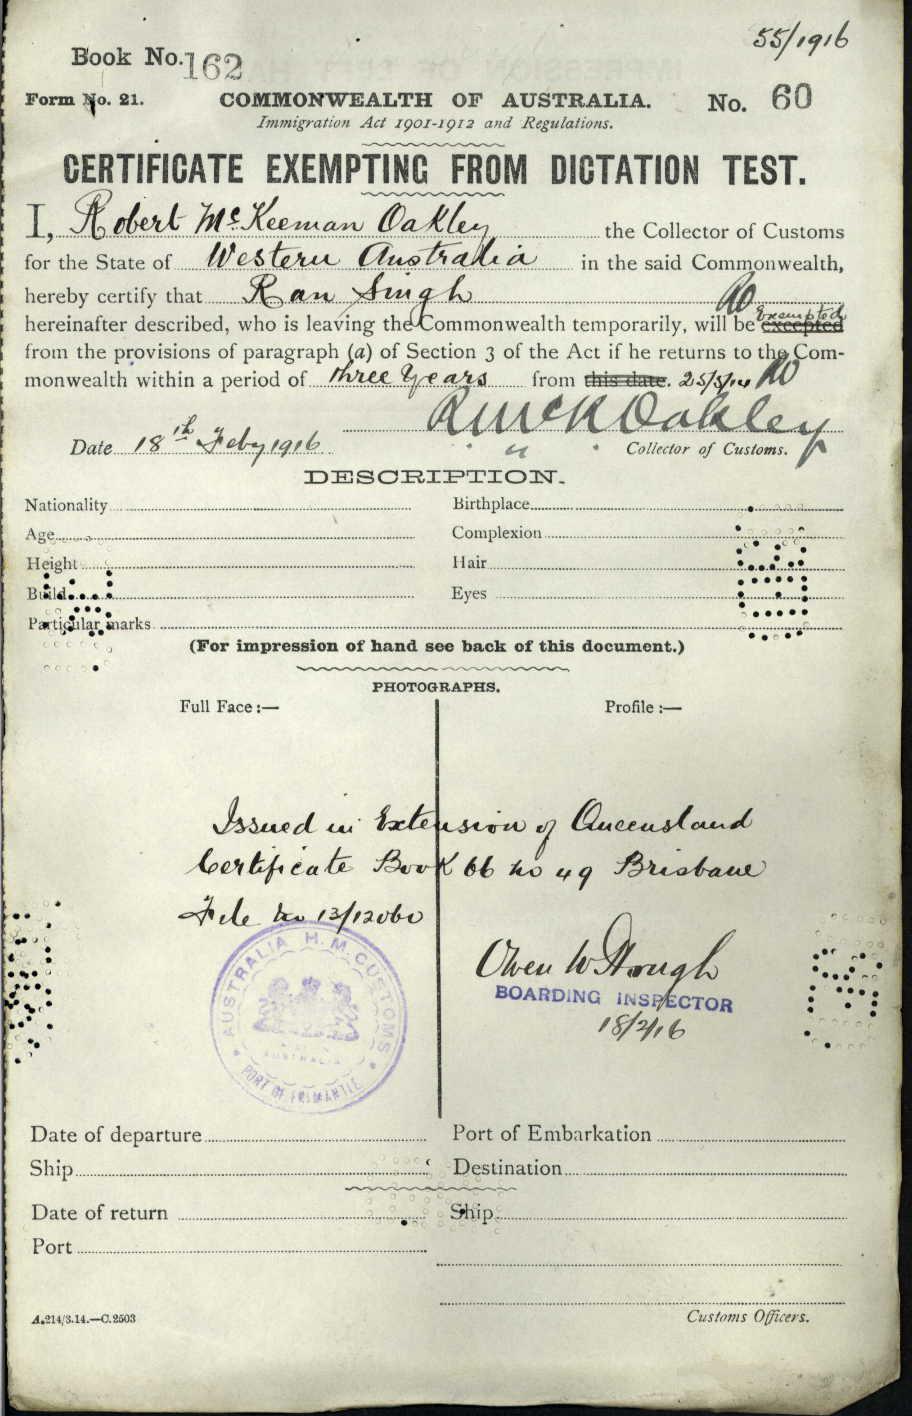 55/1916
Book No. 162
Form No. 21. COMMONWEALTH OF AUSTRALIA. No. 60
Immigration Act 1901-1912 and Regulations.
CERTIFICATE EXEMPTING FROM DICTATION TEST.
I, Robert McKeeman Oakley the Collector of Customs
for the State of Western Australia in the said Commonwealth,
hereby certify that Ran Singh RO
hereinafter described, who is leaving the Commonwealth temporarily, will be excepted Exempted
from the provisions of paragraph (a) of Section 3 of the Act if he returns to the Com-
monwealth within a period of three Years from this date. 25/5/14 RO
RMcKOakley
Date 18th Feby 1916 Collector of Customs.
DESCRIPTION.
Nationality Birthplace
Age Complexion
Height Hair
Build Eyes
Particular marks
(For impression of hand see back of this document.)
PHOTOGRAPHS.
Full Face :— Profile :—
Issued in Extension of Queensland
Certificate Book 66 no 49 Brisbane
File no 13/12060
AUSTRALIA H.M. CUSTOMS
AUSTRALIA
PORT OF FREMANTLE
Owen W Hough
BOARDING INSPECTOR
18/2/16
Date of departure Port of Embarkation
Ship Destination
Date of return Ship
Port
A.214/3.14.—C.2503 Customs Officers.